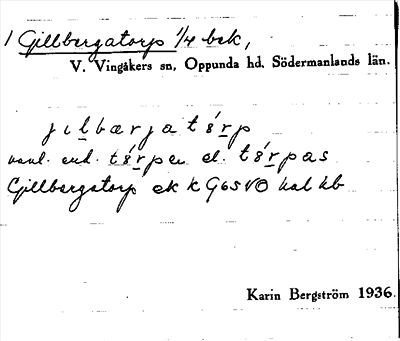 1 Gillbergatorp 1/4 bek,
V. Vingåkers sn, Oppunda hd, Södermanlands län.
jılbærjatɵ́rp
vanl. end. tɵ́rpen el. tɵ́rpas
Gillbergatorp ek k G65 VO hal kb
Karin Bergström 1936.